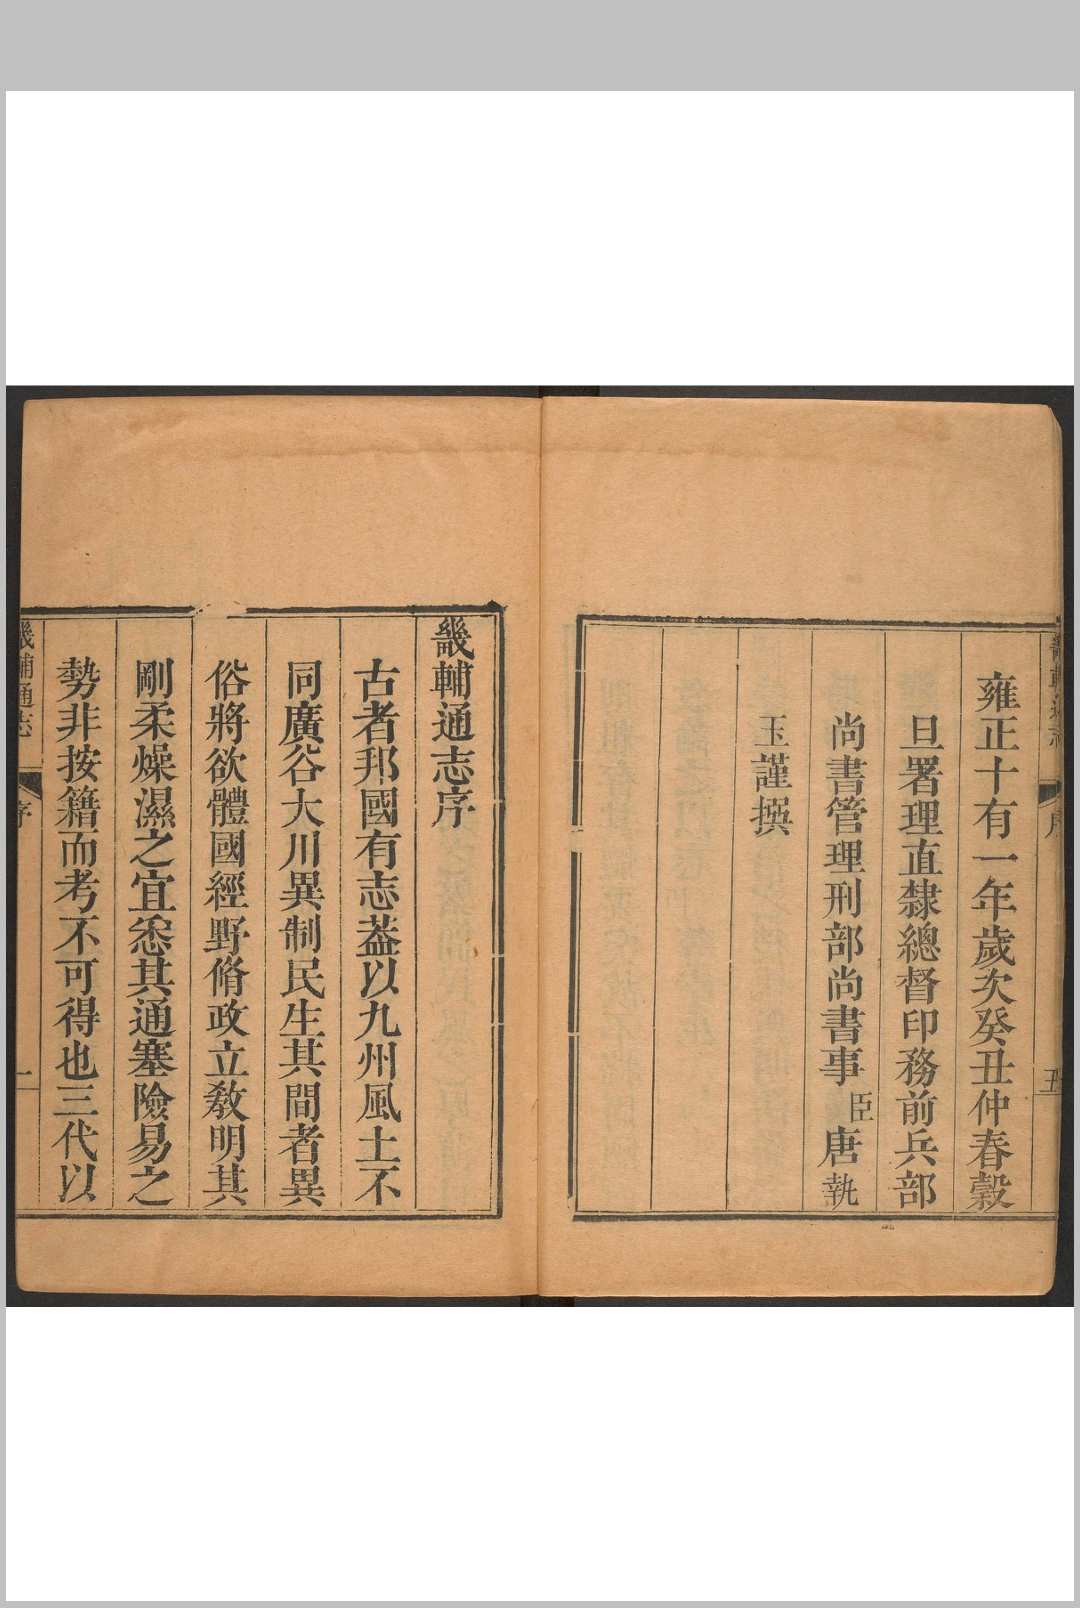 雍正十有一年歲次癸丑仲春穀
旦署理直隸總督印務前兵部
尚書管理刑部尚書事臣唐執
玉謹撰
畿輔通志序
古者邦國有志蓋以九州風土不
同廣谷大川異制民生其間者異
俗將欲體國經野脩政立敎明其
剛柔燥濕之宜悉其通塞險易之
勢非按籍而考不可得也三代以
畿輔通志
序
一